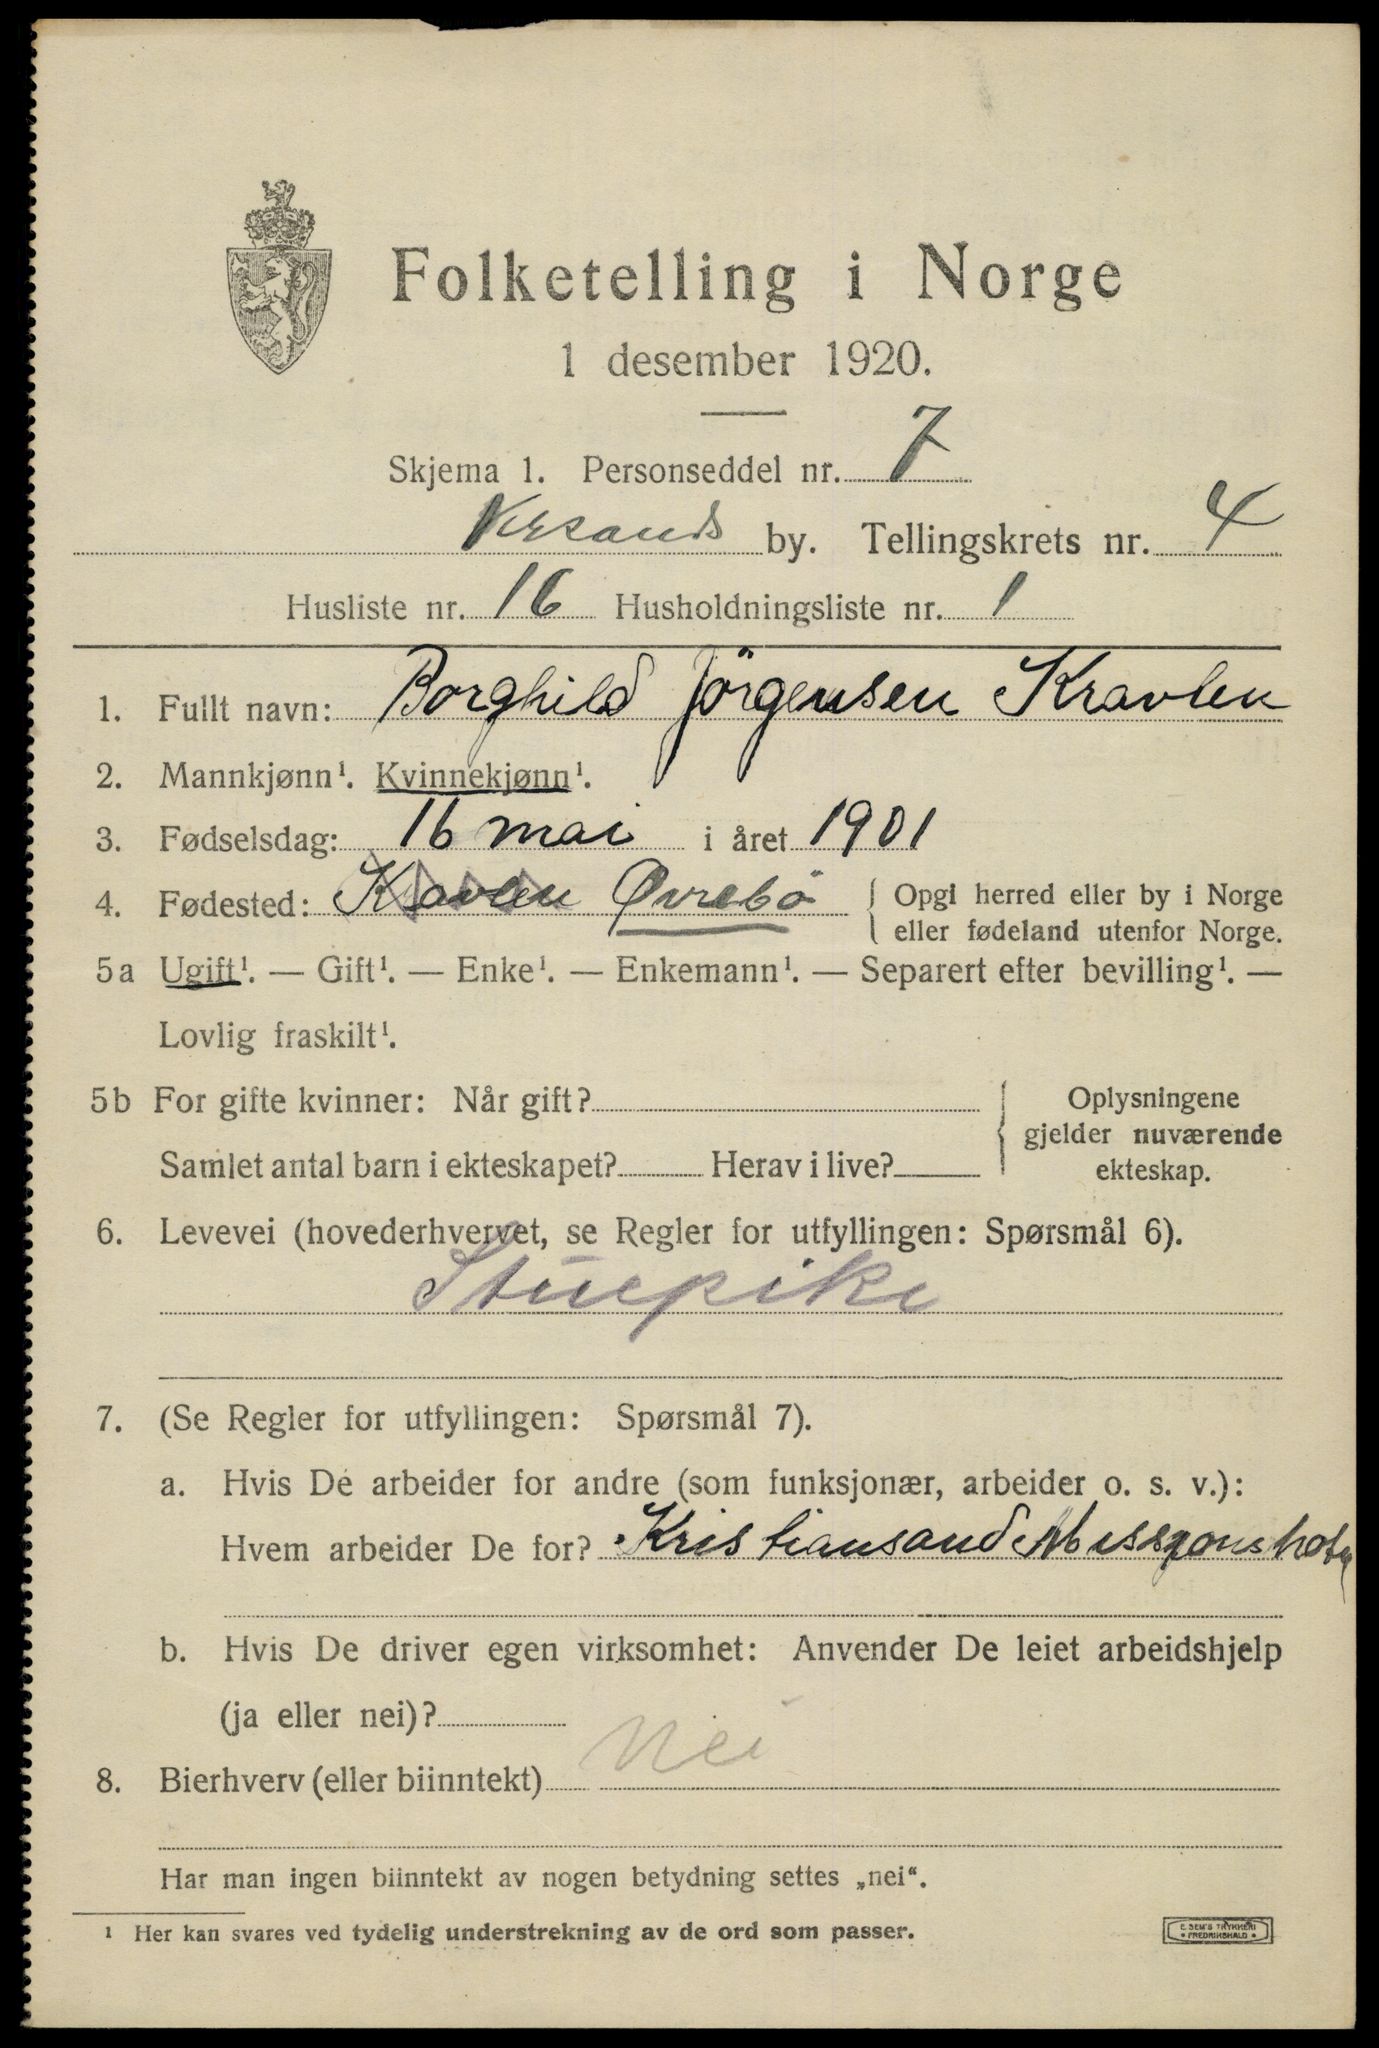 Folketelling i Norge
1 desember 1920.
Skjema 1. Personseddel nr. 7
Krsands by. Tellingskrets nr. 4
Husliste nr. 16 Husholdningsliste nr. 1
1. Fullt navn: Borghild Jörgensen Kravlen
2. Mannkjønn¹. Kvinnekjønn¹.
3. Fødselsdag: 16 mai i året 1901
4. Fødested: Kravlen Øvrebö { Opgi herred eller by i Norge
eller fødeland utenfor Norge.
5a Ugift¹. — Gift¹. — Enke¹. — Enkemann¹. — Separert efter bevilling¹. —
Lovlig fraskilt¹.
5b For gifte kvinner: Når gift? { Oplysningene
gjelder nuværende
Samlet antal barn i ekteskapet? Herav i live? ekteskap.
6. Levevei (hovederhvervet, se Regler for utfyllingen: Spørsmål 6).
Stuepike
7. (Se Regler for utfyllingen: Spørsmål 7).
a. Hvis De arbeider for andre (som funksjonær, arbeider o. s. v.):
Hvem arbeider De for? Kristiansand
b. Hvis De driver egen virksomhet: Anvender De leiet arbeidshjelp
(ja eller nei)?
8. Bierhverv (eller biinntekt) Nei
Har man ingen biinntekt av nogen betydning settes „nei“.
¹ Her kan svares ved tydelig understrekning av de ord som passer.
E. SEM'S TRYKKERI
• FREDRIKSHALD •